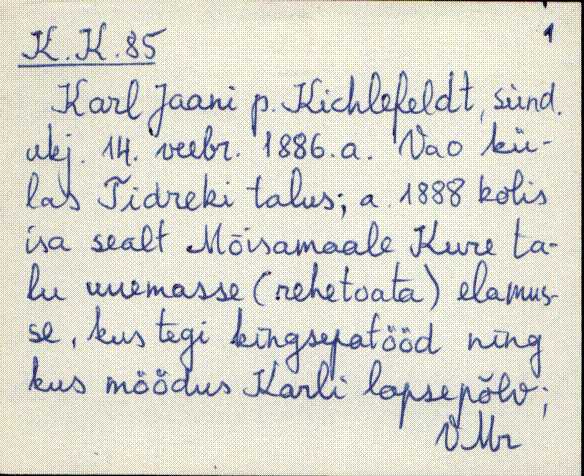 1
K.K.85
Karl Jaani p. Kichlefeldt, sünd.
ukj. 14. veebr. 1886.a. Vao kü-
las Tidreki talus; a. 1888 kolis
isa sealt Mõisamaale Kure ta-
lu uuemasse (rehetoata) elamus-
se, kus tegi kingsepatööd ning
kus möödus Karli lapsepõlv;
VMr